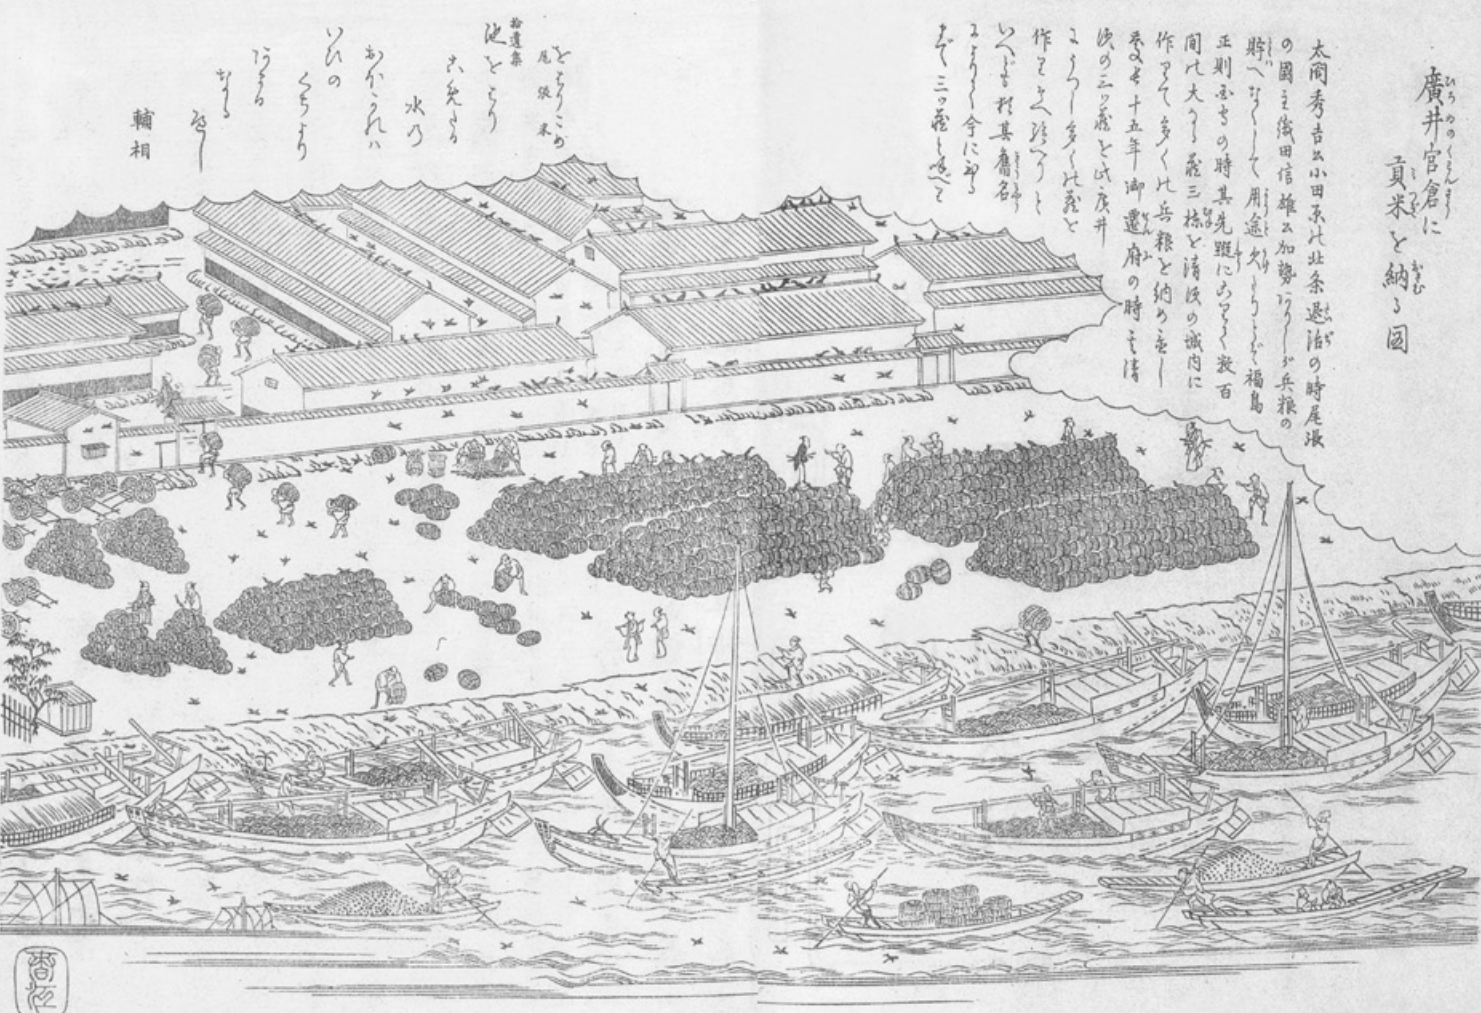 廣井官倉に
貢米を納る図
太閤秀吉公小田原北条退治の時尾張
の國主織田信雄公加勢ありしが兵粮の
貯へなくして用途欠たりとぞ福島
正則の時其先蹤に数百
間の大なる蔵三棟を清須の城内に
作りて多くの兵粮を納め置し
慶長十五年御遷府の時清
須の三ツ蔵を此広井
にうつし多くの蔵を
作りそへ給へりと
いへども猶其舊名
によりて今に至る
まで三ツ蔵と
をはりこめ
尾張米
拾遺集
池をはり
こめたる
水の
おほかれハ
いひの
くちより
あまる
なる
べし
輔相